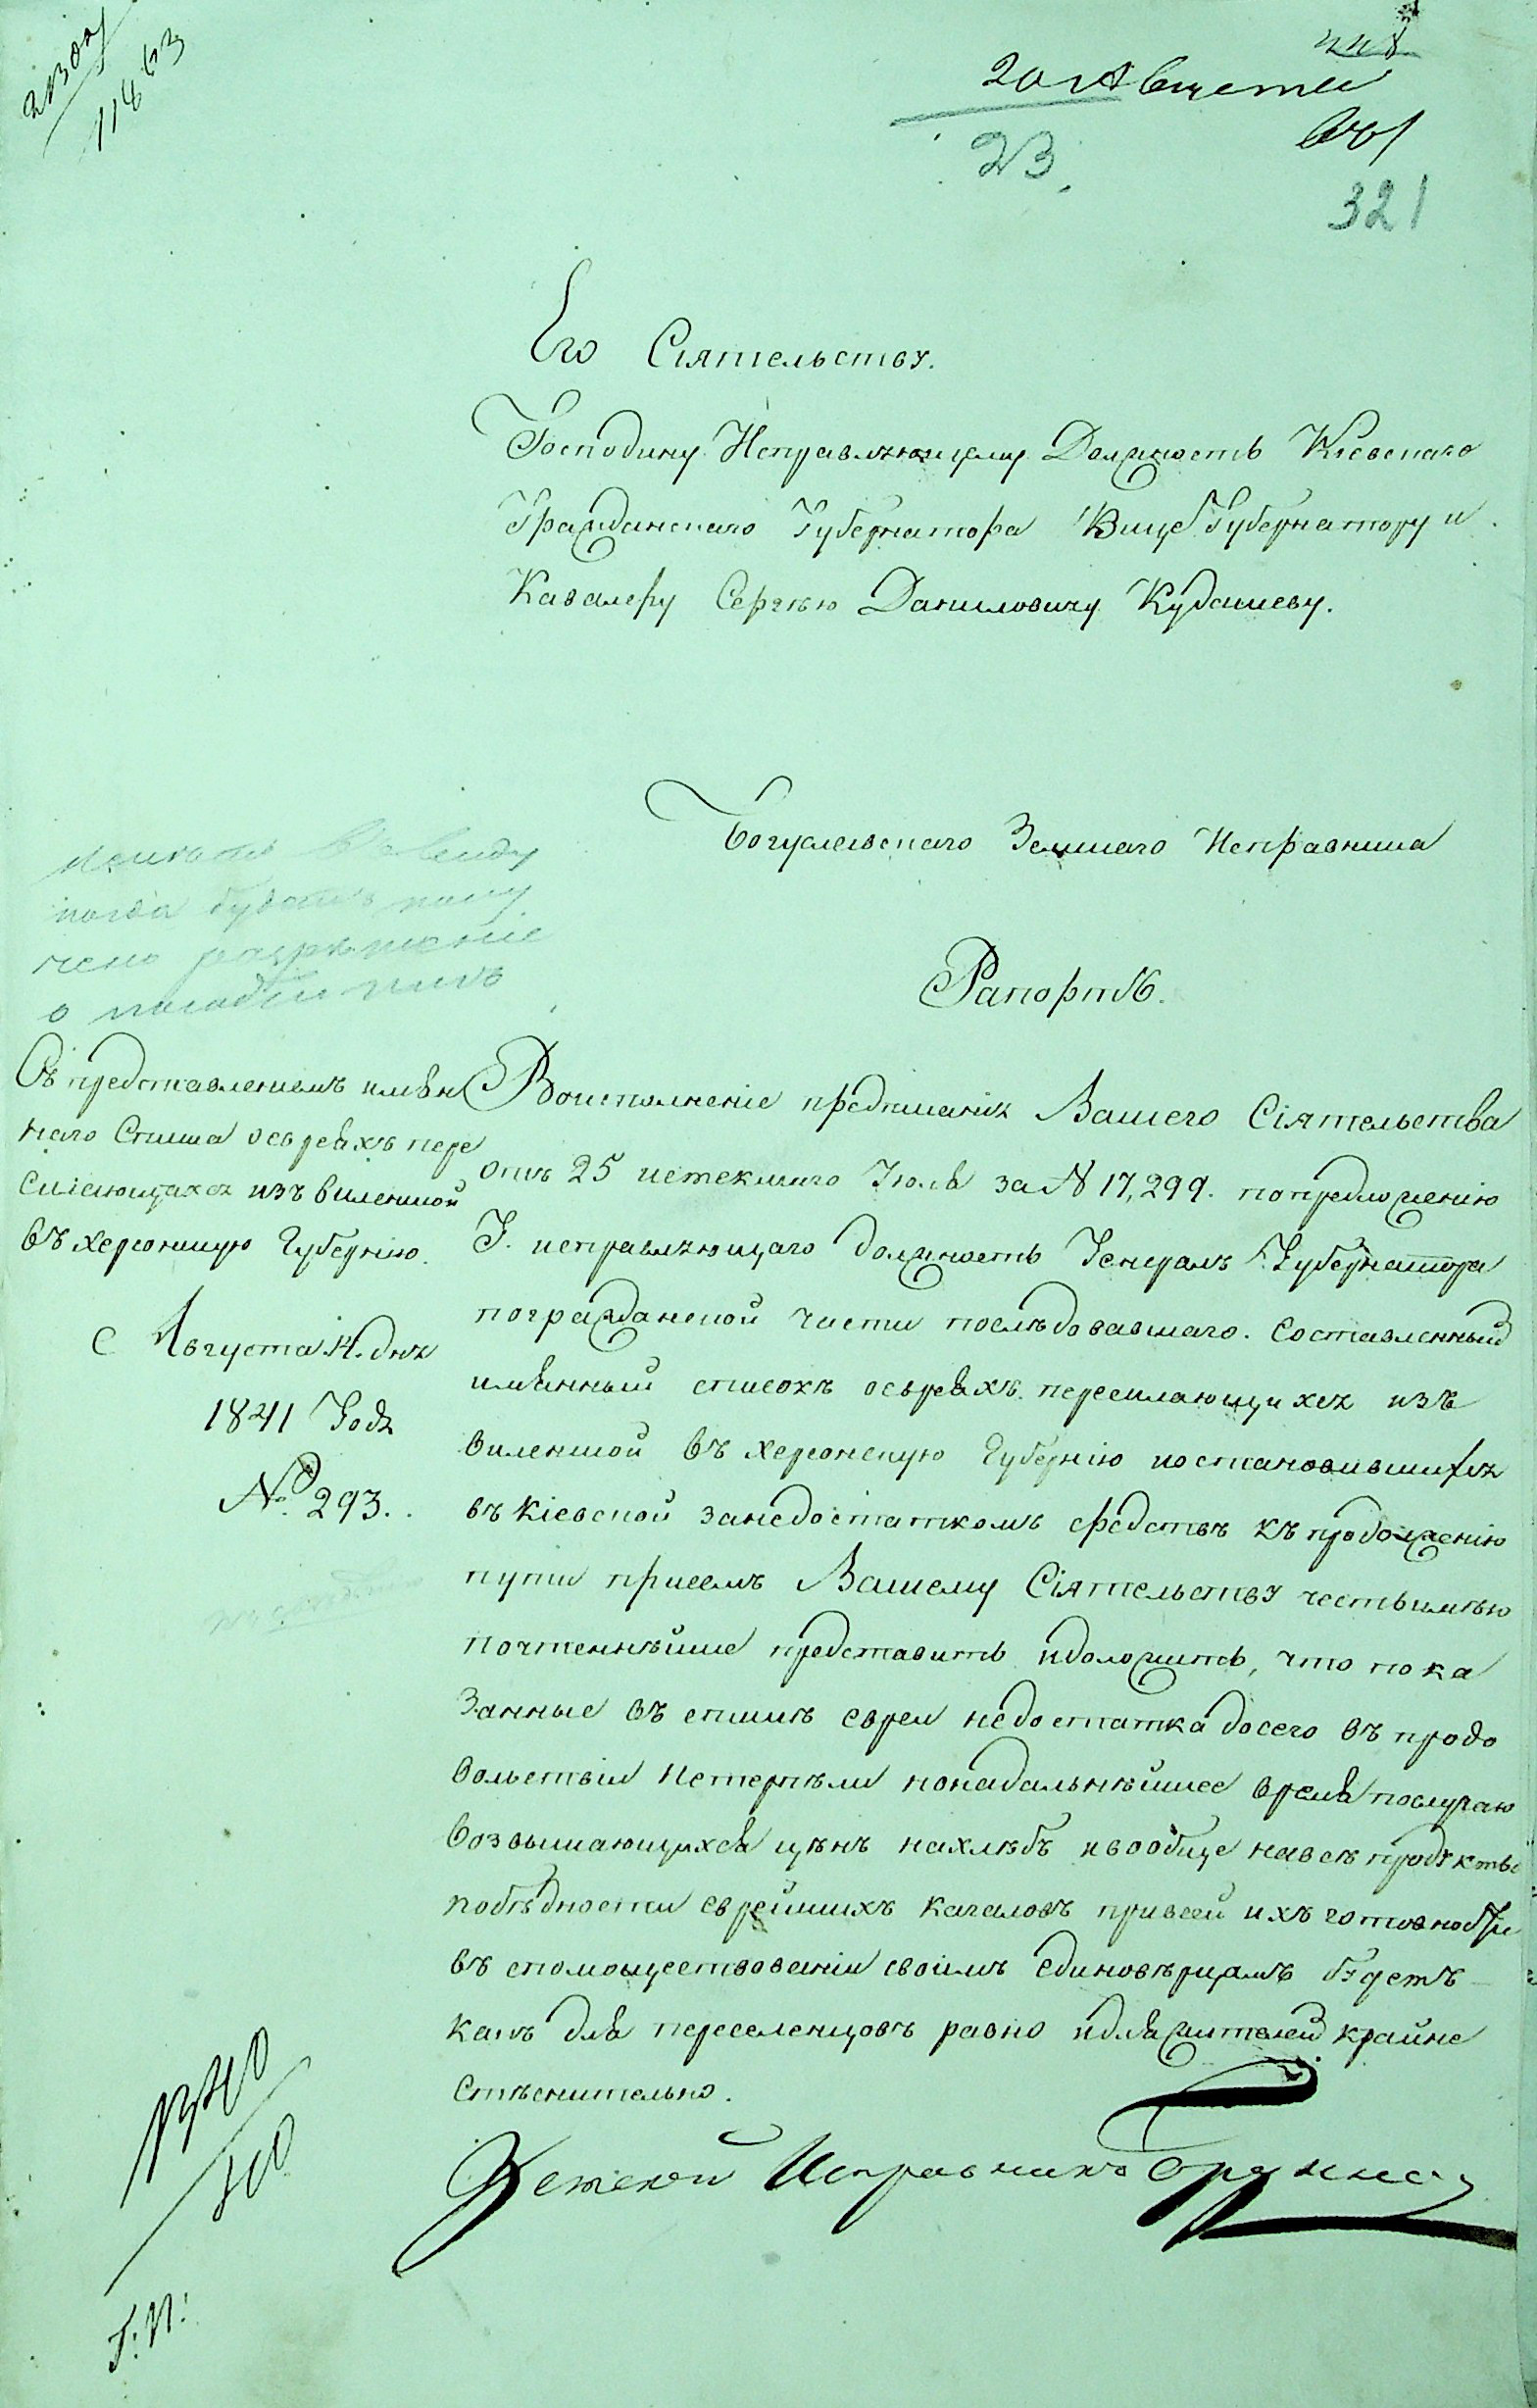 20 Августа
23.
321
Его Сіятельству.
Господину Исправляющему Должность Кіевскаго
Гражданскаго Губернатора Вице Губернатору и
Кавалеру Сергѣю Даниловичу Кудашеву.
Богуславскаго Земскаго Исправника
Рапортъ.
имѣть въ виду
когда будетъ полу
чено разрѣшеніе
о
Съ представленіемъ имян
наго Списка о евреяхъ пере
сылающихся изъ виленской
въ херсонскую Губернію.
Августа 14. дня
1841 Года
№ 293.
Воисполненіе предписанія Вашего Сіятельства
отъ 25 истекшаго Іюля за № 17,299. попредложенію
Г. исправляющаго должность Генералъ Губернатора
погражданской части послѣдовавшаго. составленный
имянный списокъ оевреяхъ пересилающихся изъ
виленской въ херсонскую Губернію иостановившихся
въ кіевской занедостаткомъ средствъ къ продолженію
пути присемъ Вашему Сіятельству честьимѣю
почтеннѣйше представить идоложить, что пока
занные въ спискѣ евреи недостатка досего въ продо
вольствіи нетерпѣли нонадальнѣйшее время послучаю
возвышающихся цѣнъ нахлѣбъ ивообще навсѣ продукты
побѣдности еврейскихъ кагаловъ привсей ихъ готовности
въ спомоществованіи своимъ единовѣрцамъ будетъ
какъ для переселенцовъ равно идляжителей крайне
стѣснительно.
Земскій Исправникъ